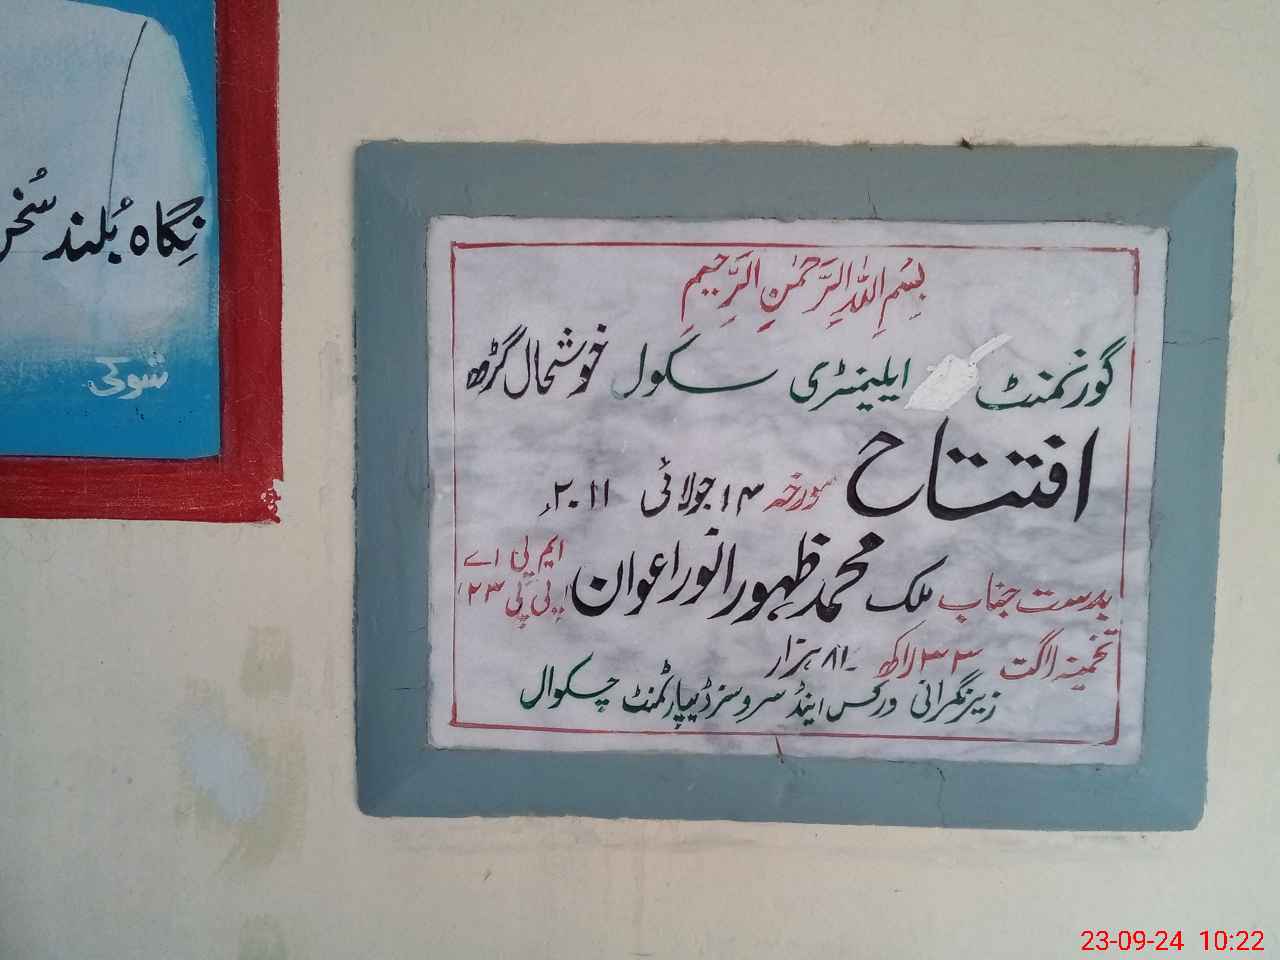 نِگاہ بُلند سُخن
شوکی
بِسْمِ اللہِ الرَّحْمٰنِ الرَّحِیْمِ
گورنمنٹ ایلیمنٹری سکول خوشحال گڑھ
افتتاح مورخہ ۱۴ جولائی ۲۰۱۱ء
بدست جناب ملک محمد ظہور انور اعوان ایم پی اے پی پی ۲۳
تخمینہ لاگت ۳۳ لاکھ ۸۱ ہزار
زیر نگرانی ورکس اینڈ سروسز ڈیپارٹمنٹ چکوال
23-09-24 10:22